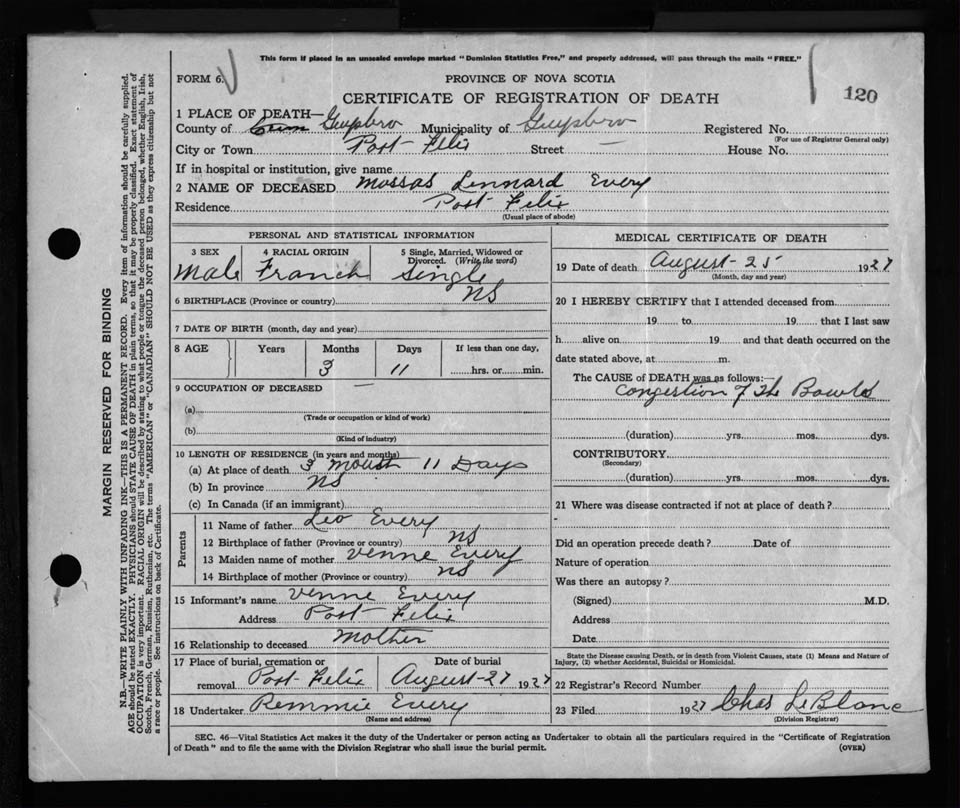 This form if placed in an unsealed envelope marked "Dominion Statistics Free," and properly addressed, will pass through the mails "FREE."
FORM 6. PROVINCE OF NOVA SCOTIA
CERTIFICATE OF REGISTRATION OF DEATH 120
1 PLACE OF DEATH—
County of Guysboro Municipality of Guysboro Registered No.
(For use of Registrar General only)
City or Town Port Felix Street — House No.
If in hospital or institution, give name
2 NAME OF DECEASED Mossas Lennard Every
Residence Port Felix
(Usual place of abode)
PERSONAL AND STATISTICAL INFORMATION
3 SEX 4 RACIAL ORIGIN 5 Single, Married, Widowed or Divorced. (Write the word)
Male Franch Single
6 BIRTHPLACE (Province or country) NS
7 DATE OF BIRTH (month, day and year)
8 AGE Years Months Days If less than one day,
3 11 hrs. or min.
9 OCCUPATION OF DECEASED —
(a)
(Trade or occupation or kind of work)
(b)
(Kind of industry)
10 LENGTH OF RESIDENCE (in years and months)
(a) At place of death 3 Mouth 11 Days
(b) In province NS
(c) In Canada (if an immigrant)
Parents
11 Name of father Leo Every
12 Birthplace of father (Province or country) NS
13 Maiden name of mother Venne Every
14 Birthplace of mother (Province or country) NS
15 Informant's name Venne Every
Address Port Felix
16 Relationship to deceased Mother
17 Place of burial, cremation or removal Port Felix Date of burial August 27 1927
18 Undertaker Remmie Every
(Name and address)
MEDICAL CERTIFICATE OF DEATH
19 Date of death August 25 1927
(Month, day and year)
20 I HEREBY CERTIFY that I attended deceased from
19 to 19 that I last saw
h alive on 19 and that death occurred on the
date stated above, at m.
The CAUSE of DEATH was as follows:—
Congestion of the Bowles
(duration) yrs. mos. dys.
CONTRIBUTORY
(Secondary)
(duration) yrs. mos. dys.
21 Where was disease contracted if not at place of death?
Did an operation precede death? Date of
Nature of operation
Was there an autopsy?
(Signed) M.D.
Address
Date
State the Disease causing Death, or in death from Violent Causes, state (1) Means and Nature of
Injury, (2) whether Accidental, Suicidal or Homicidal.
22 Registrar's Record Number
23 Filed 1927 Chas LeBlanc
(Division Registrar)
SEC. 46—Vital Statistics Act makes it the duty of the Undertaker or person acting as Undertaker to obtain all the particulars required in the "Certificate of Registration
of Death" and to file the same with the Division Registrar who shall issue the burial permit. (OVER)
MARGIN RESERVED FOR BINDING
N.B.—WRITE PLAINLY WITH UNFADING INK—THIS IS A PERMANENT RECORD. Every item of information should be carefully supplied.
AGE should be stated EXACTLY. PHYSICIANS should STATE CAUSE OF DEATH in plain terms, so that it may be properly classified. Exact statement of
OCCUPATION is very important. RACIAL ORIGIN will be described by stating to what people or tongue the deceased person belonged, whether English, Irish,
Scotch, French, German, Russian, Ruthenian, etc. The terms "AMERICAN" or "CANADIAN" SHOULD NOT BE USED as they express citizenship but not
a race or people. See instructions on back of Certificate.